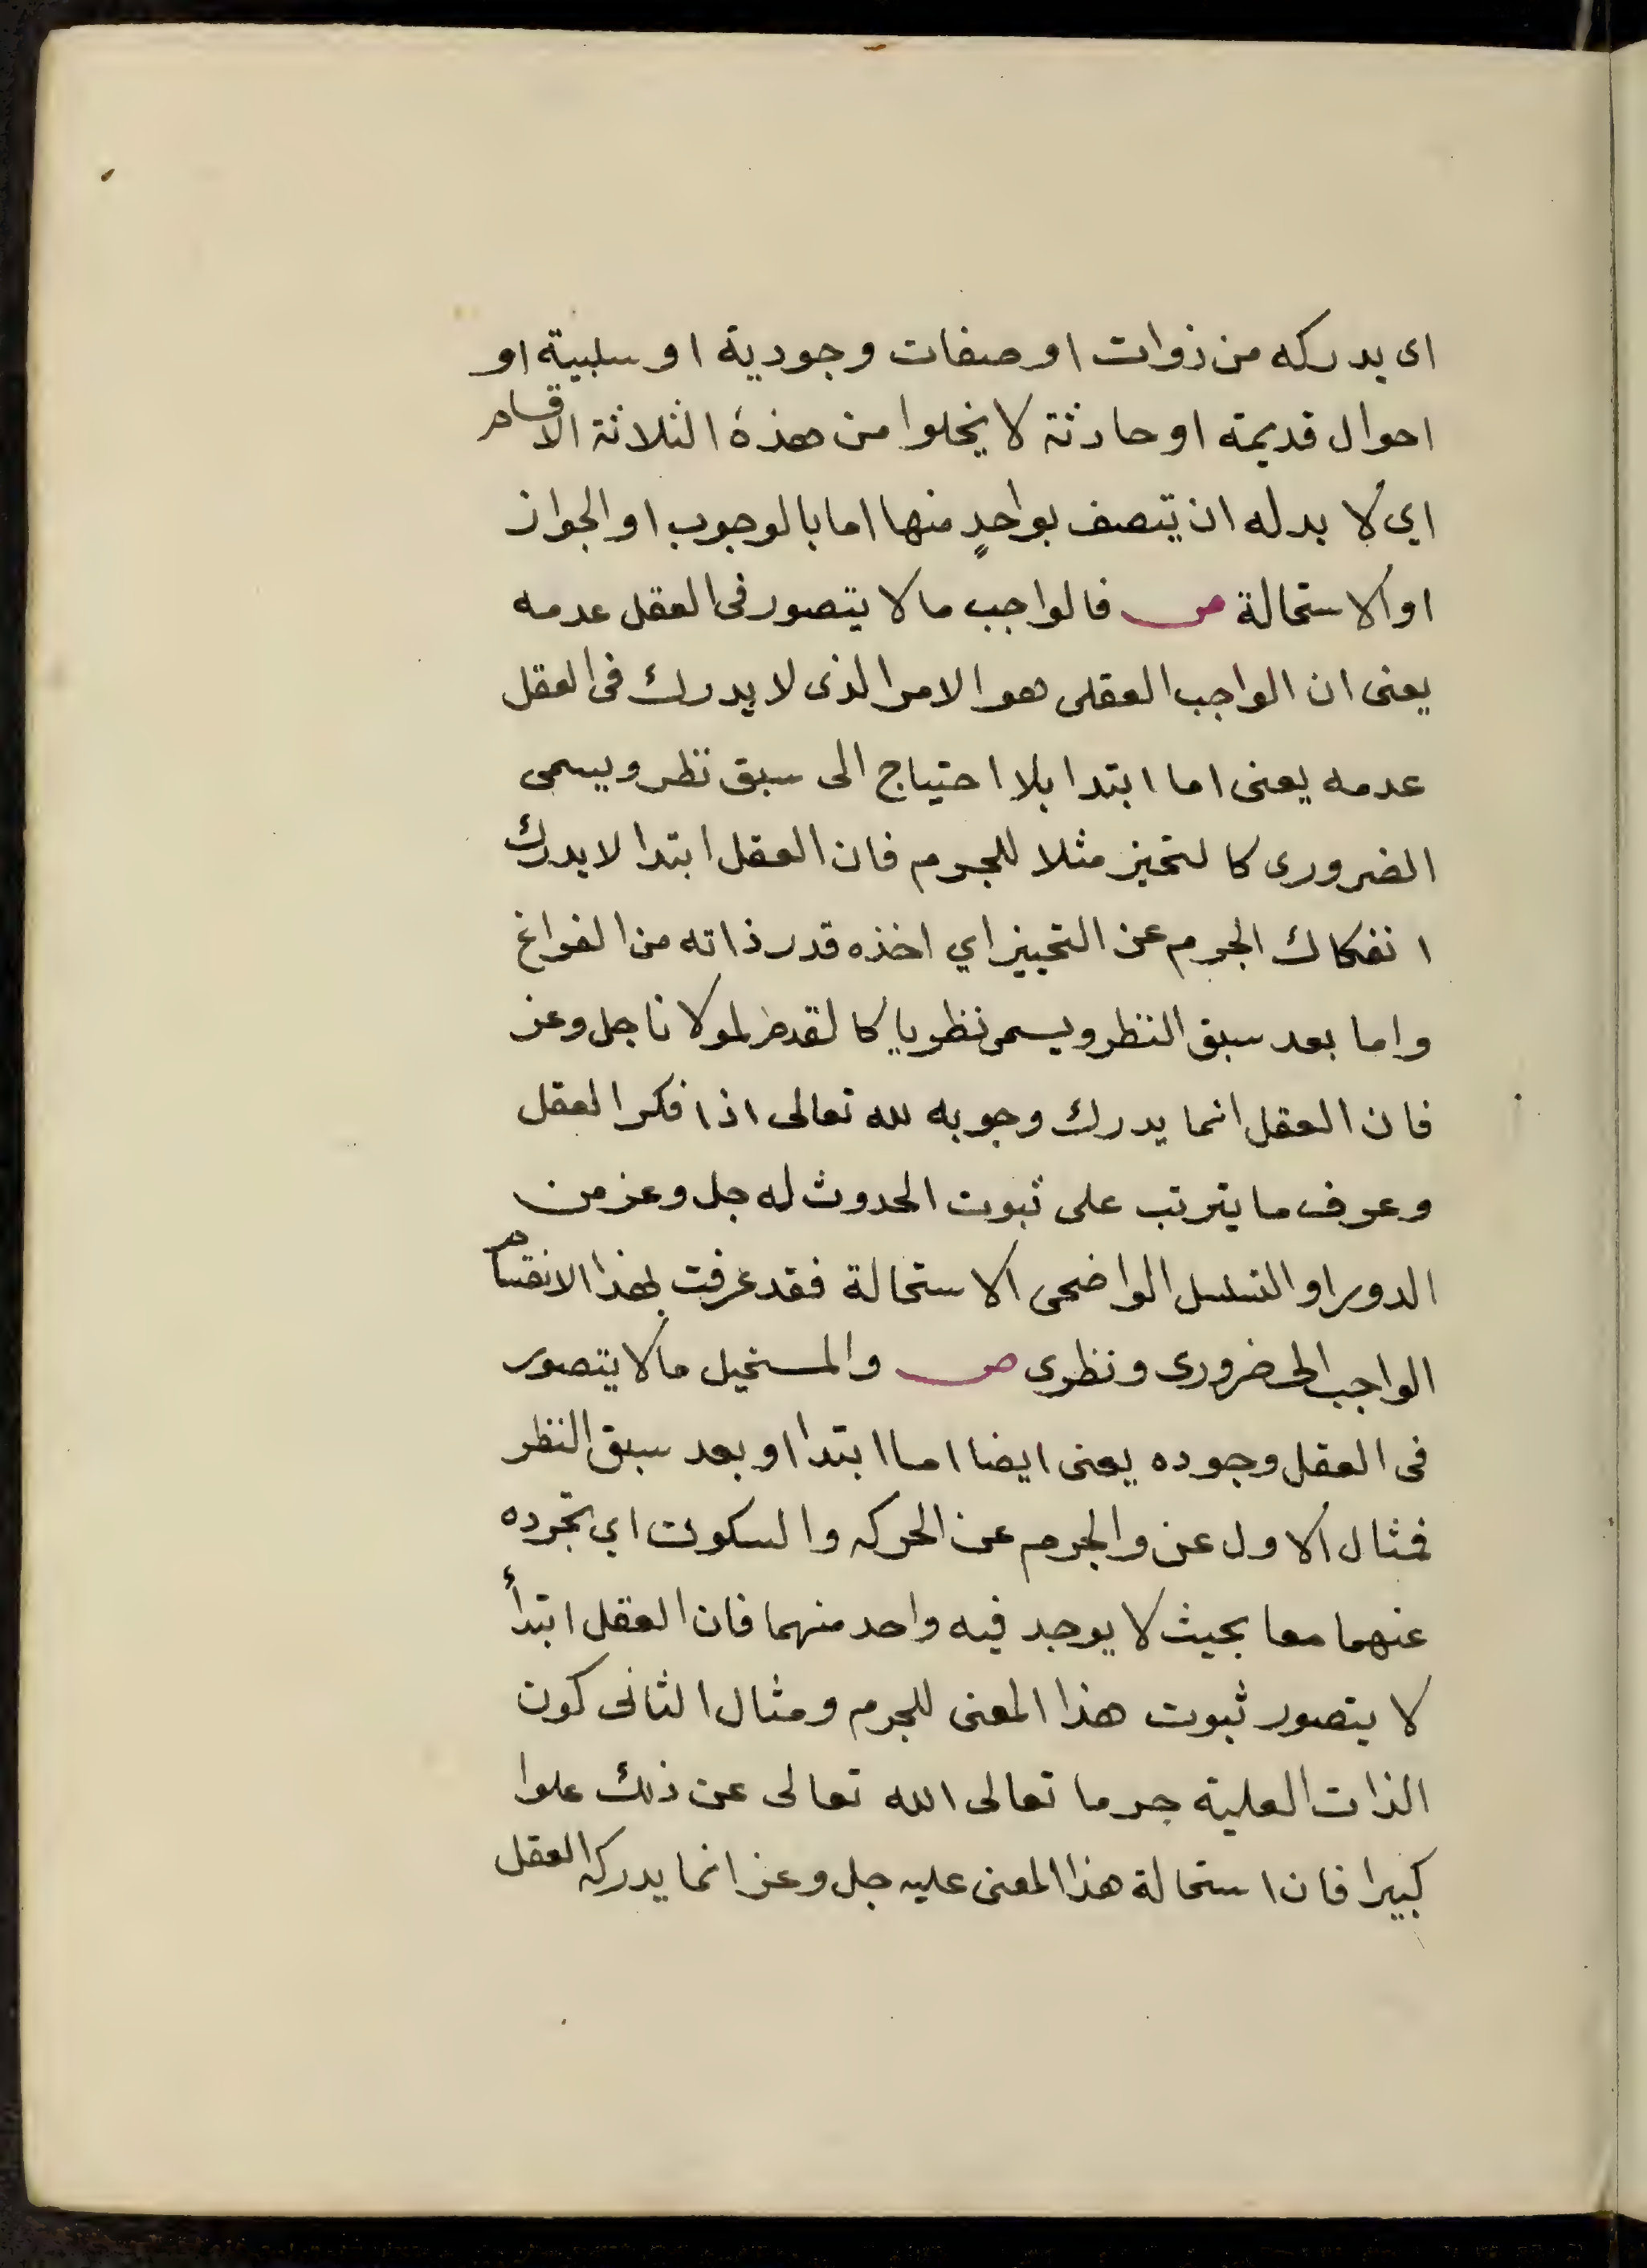 اى يدركه من ذوات او صفات وجودية او سلبية او
احوال قديمة او حادثة لا يخلوا من هذه الثلاثة الاقسام
اي لا بد له ان يتصف بواحدٍ منها اما بالوجوب او الجواز
او الاستحالة ص فالواجب ما لا يتصور فى العقل عدمه
يعنى ان الواجب العقلى هو الامر الذى لا يدرك فى العقل
عدمه يعنى اما ابتدا بلا احتياج الى سبق نظر ويسمى
الضرورى كالتحيز مثلا للجرم فان العقل ابتدا لا يدرك
انفكاك الجرم عن التحييز اي اخذه قدر ذاته من الفراغ
واما بعد سبق النظر ويسمى نظريا كالقدم لمولانا جل وعز
فان العقل انما يدرك وجوبه لله تعالى اذا فكر العقل
وعرف ما يترتب على ثبوت الحدوث له جل وعز من
الدور او التسلسل الواضحى الاستحالة فقد عرفت لهذا الانقسام
الواجب الى ضرورى ونظرى ص والمستحيل ما لا يتصور
فى العقل وجوده يعنى ايضا اما ابتدا او بعد سبق النظر
فمثال الاول عن والجرم عن الحركه والسكون اي تجرده
عنهما معا بحيث لا يوجد فيه واحد منهما فان العقل ابتدأ
لا يتصور ثبوت هذا المعنى للجرم ومثال الثانى كون
الذات العلية جرما تعالى الله تعالى عن ذلك علوا
كبيرا فان استحالة هذا المعنى عليه جل وعز انما يدركه العقل